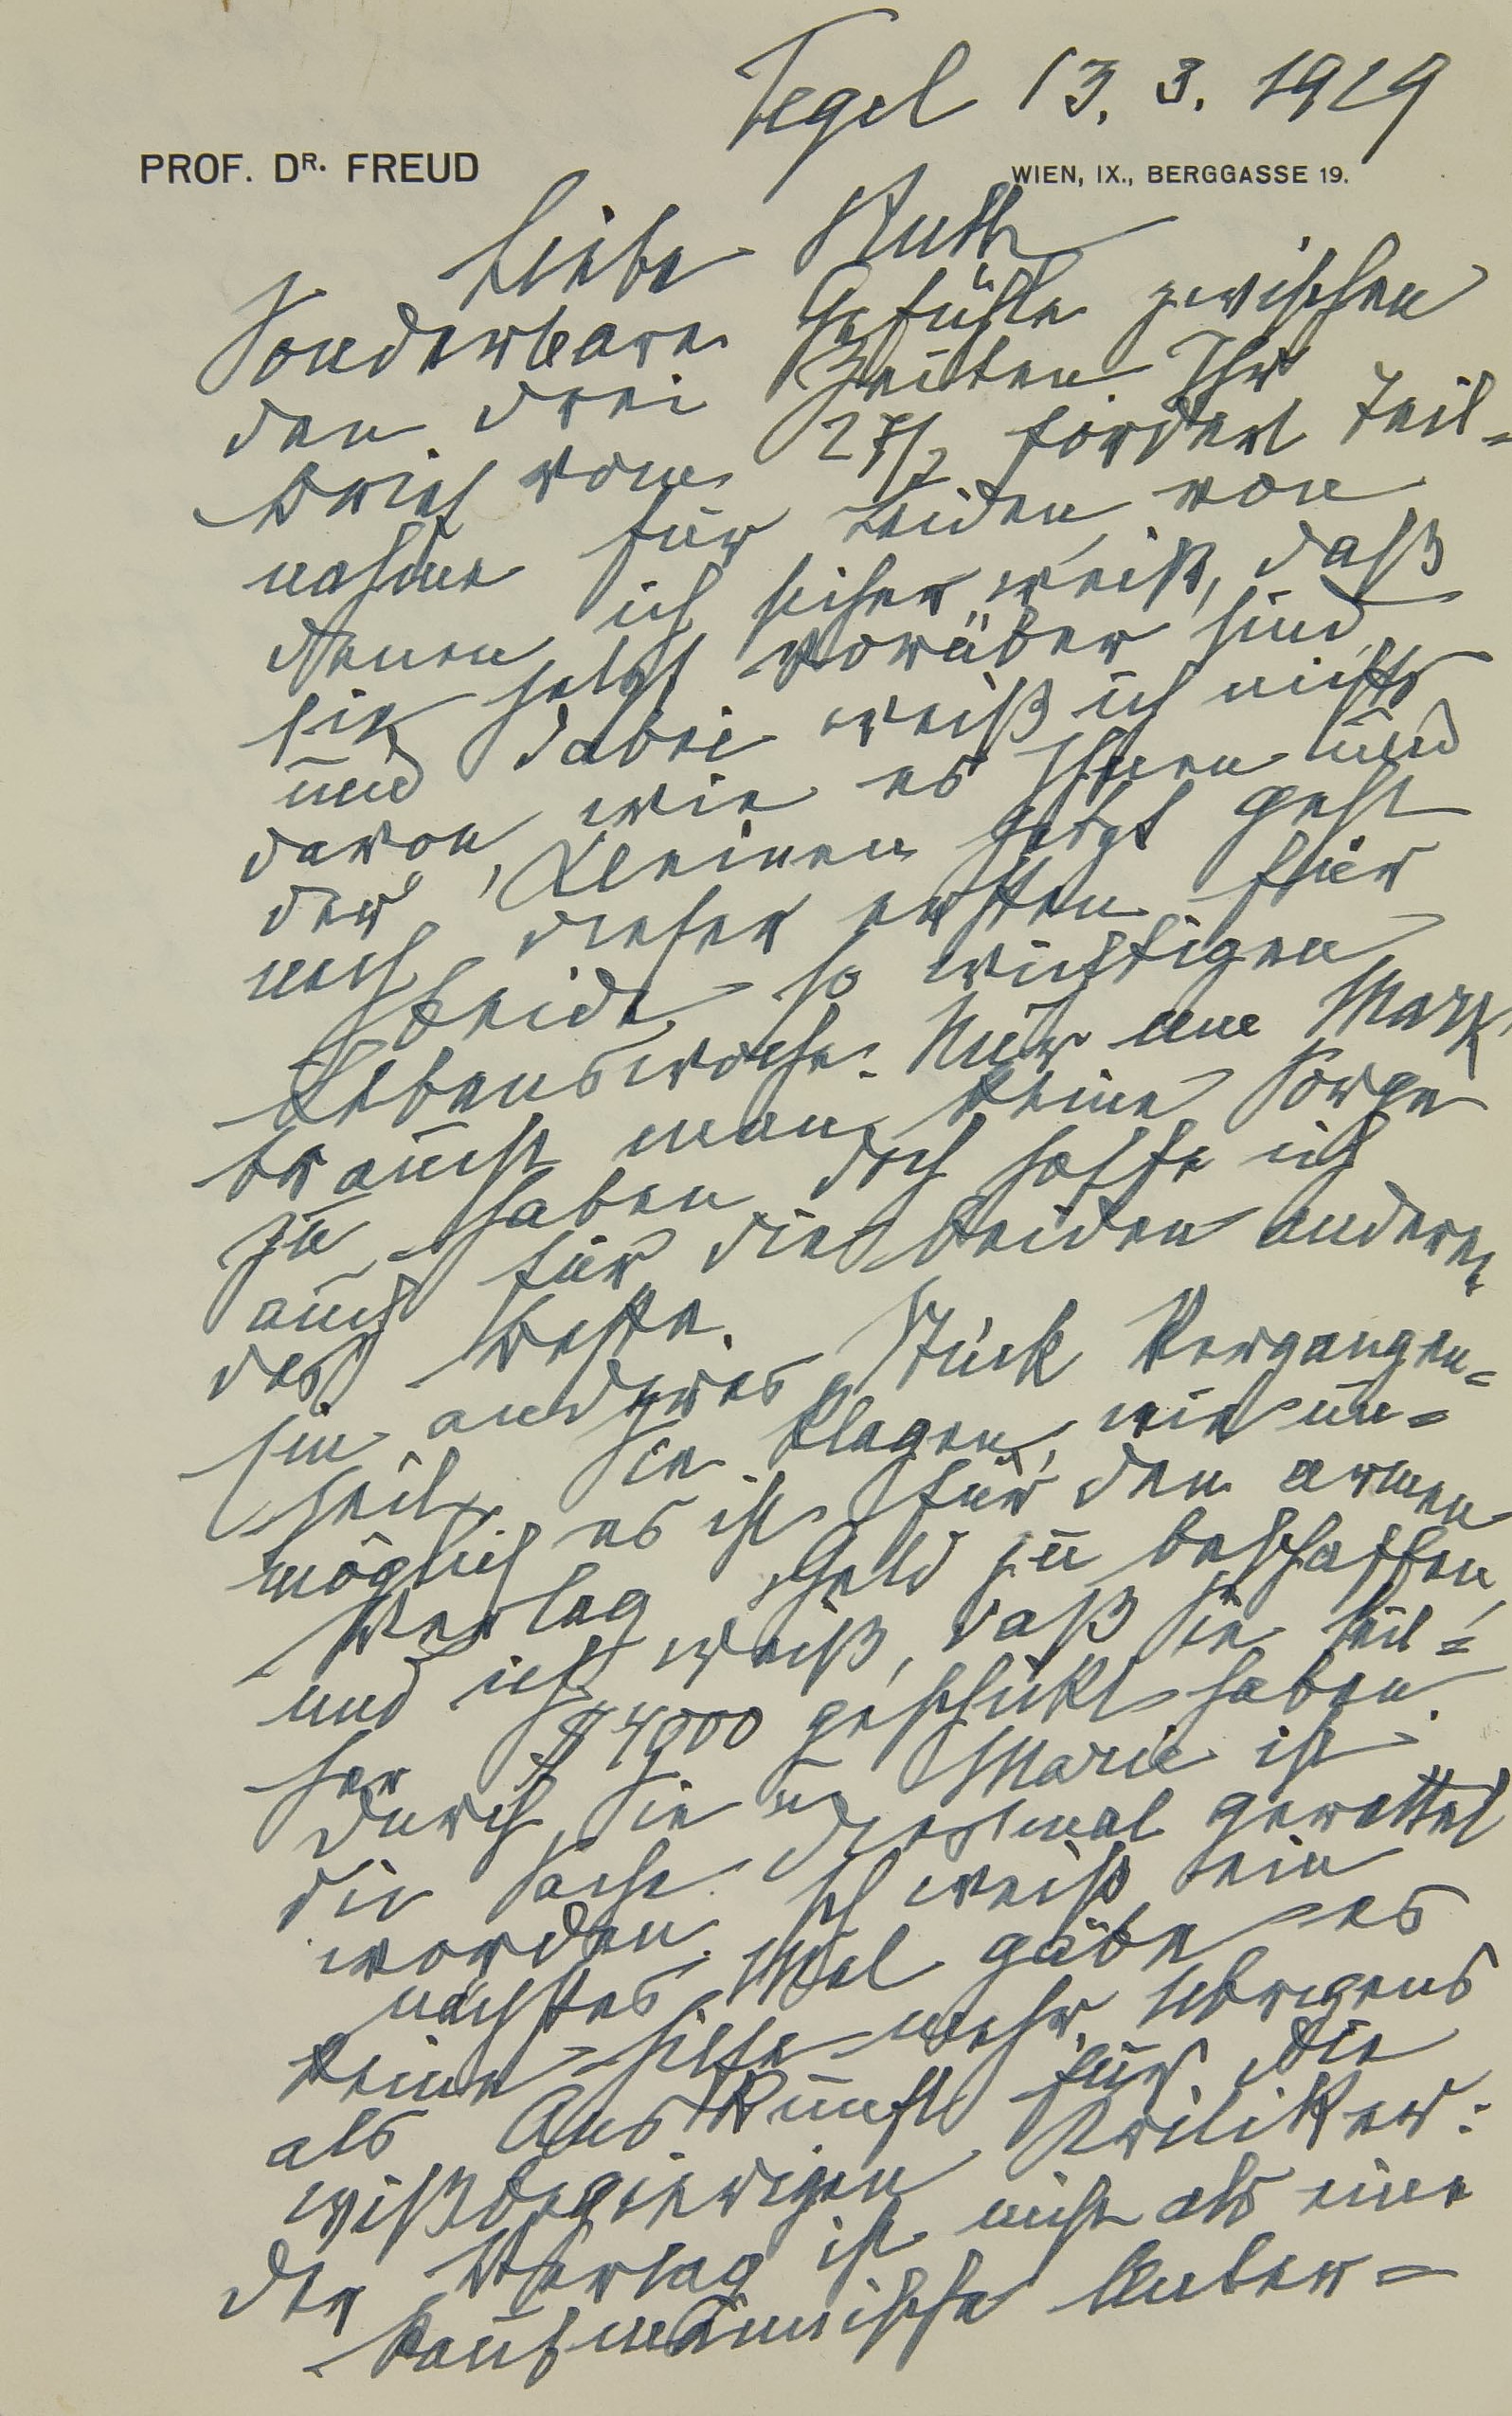 Tegel 13. 3. 1929
PROF. DR. FREUD
WIEN, IX., BERGGASSE 19.
Liebe Ruth
Sonderbare Gefühle zwischen
den drei Zeiten. Ihr
Brief vom 27/2 fordert Teil-
nahme für Leiden, von
denen ich sicher weiß, daß
sie selbst vorüber sind
und dabei weiß ich nichts
davon, wie es Ihnen und
der Kleinen jetzt geht
nach dieser ersten für
beide so wichtigen
Lebenswoche. Nur um Mark
braucht man keine Sorge
zu haben, doch hoffe ich
auch für die beiden anderen
das Beste.
Ein anderes Stück Vergangen-
heit. Sie klagen, wie un-
möglich es ist für den armen
Verlag Geld zu beschaffen,
und ich weiß, daß Sie seit-
her $ 4000 geschickt haben.
Durch Sie u Marie ist
die Sache diesmal gerettet
worden. Ich weiß, ein
nächstes Mal gäbe es
keine Hilfe mehr. Uebrigens
als Auskunft für die
wißbegierigen Kritiker:
der Verlag ist nicht als eine
kaufmännische Unter-